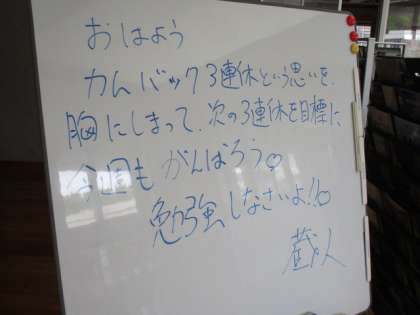 おはよう
カムバック3連休という思いを、
胸にしまって、次の3連休を目標に
今週も がんばろう
勉強しなさいよ!!
蔵人